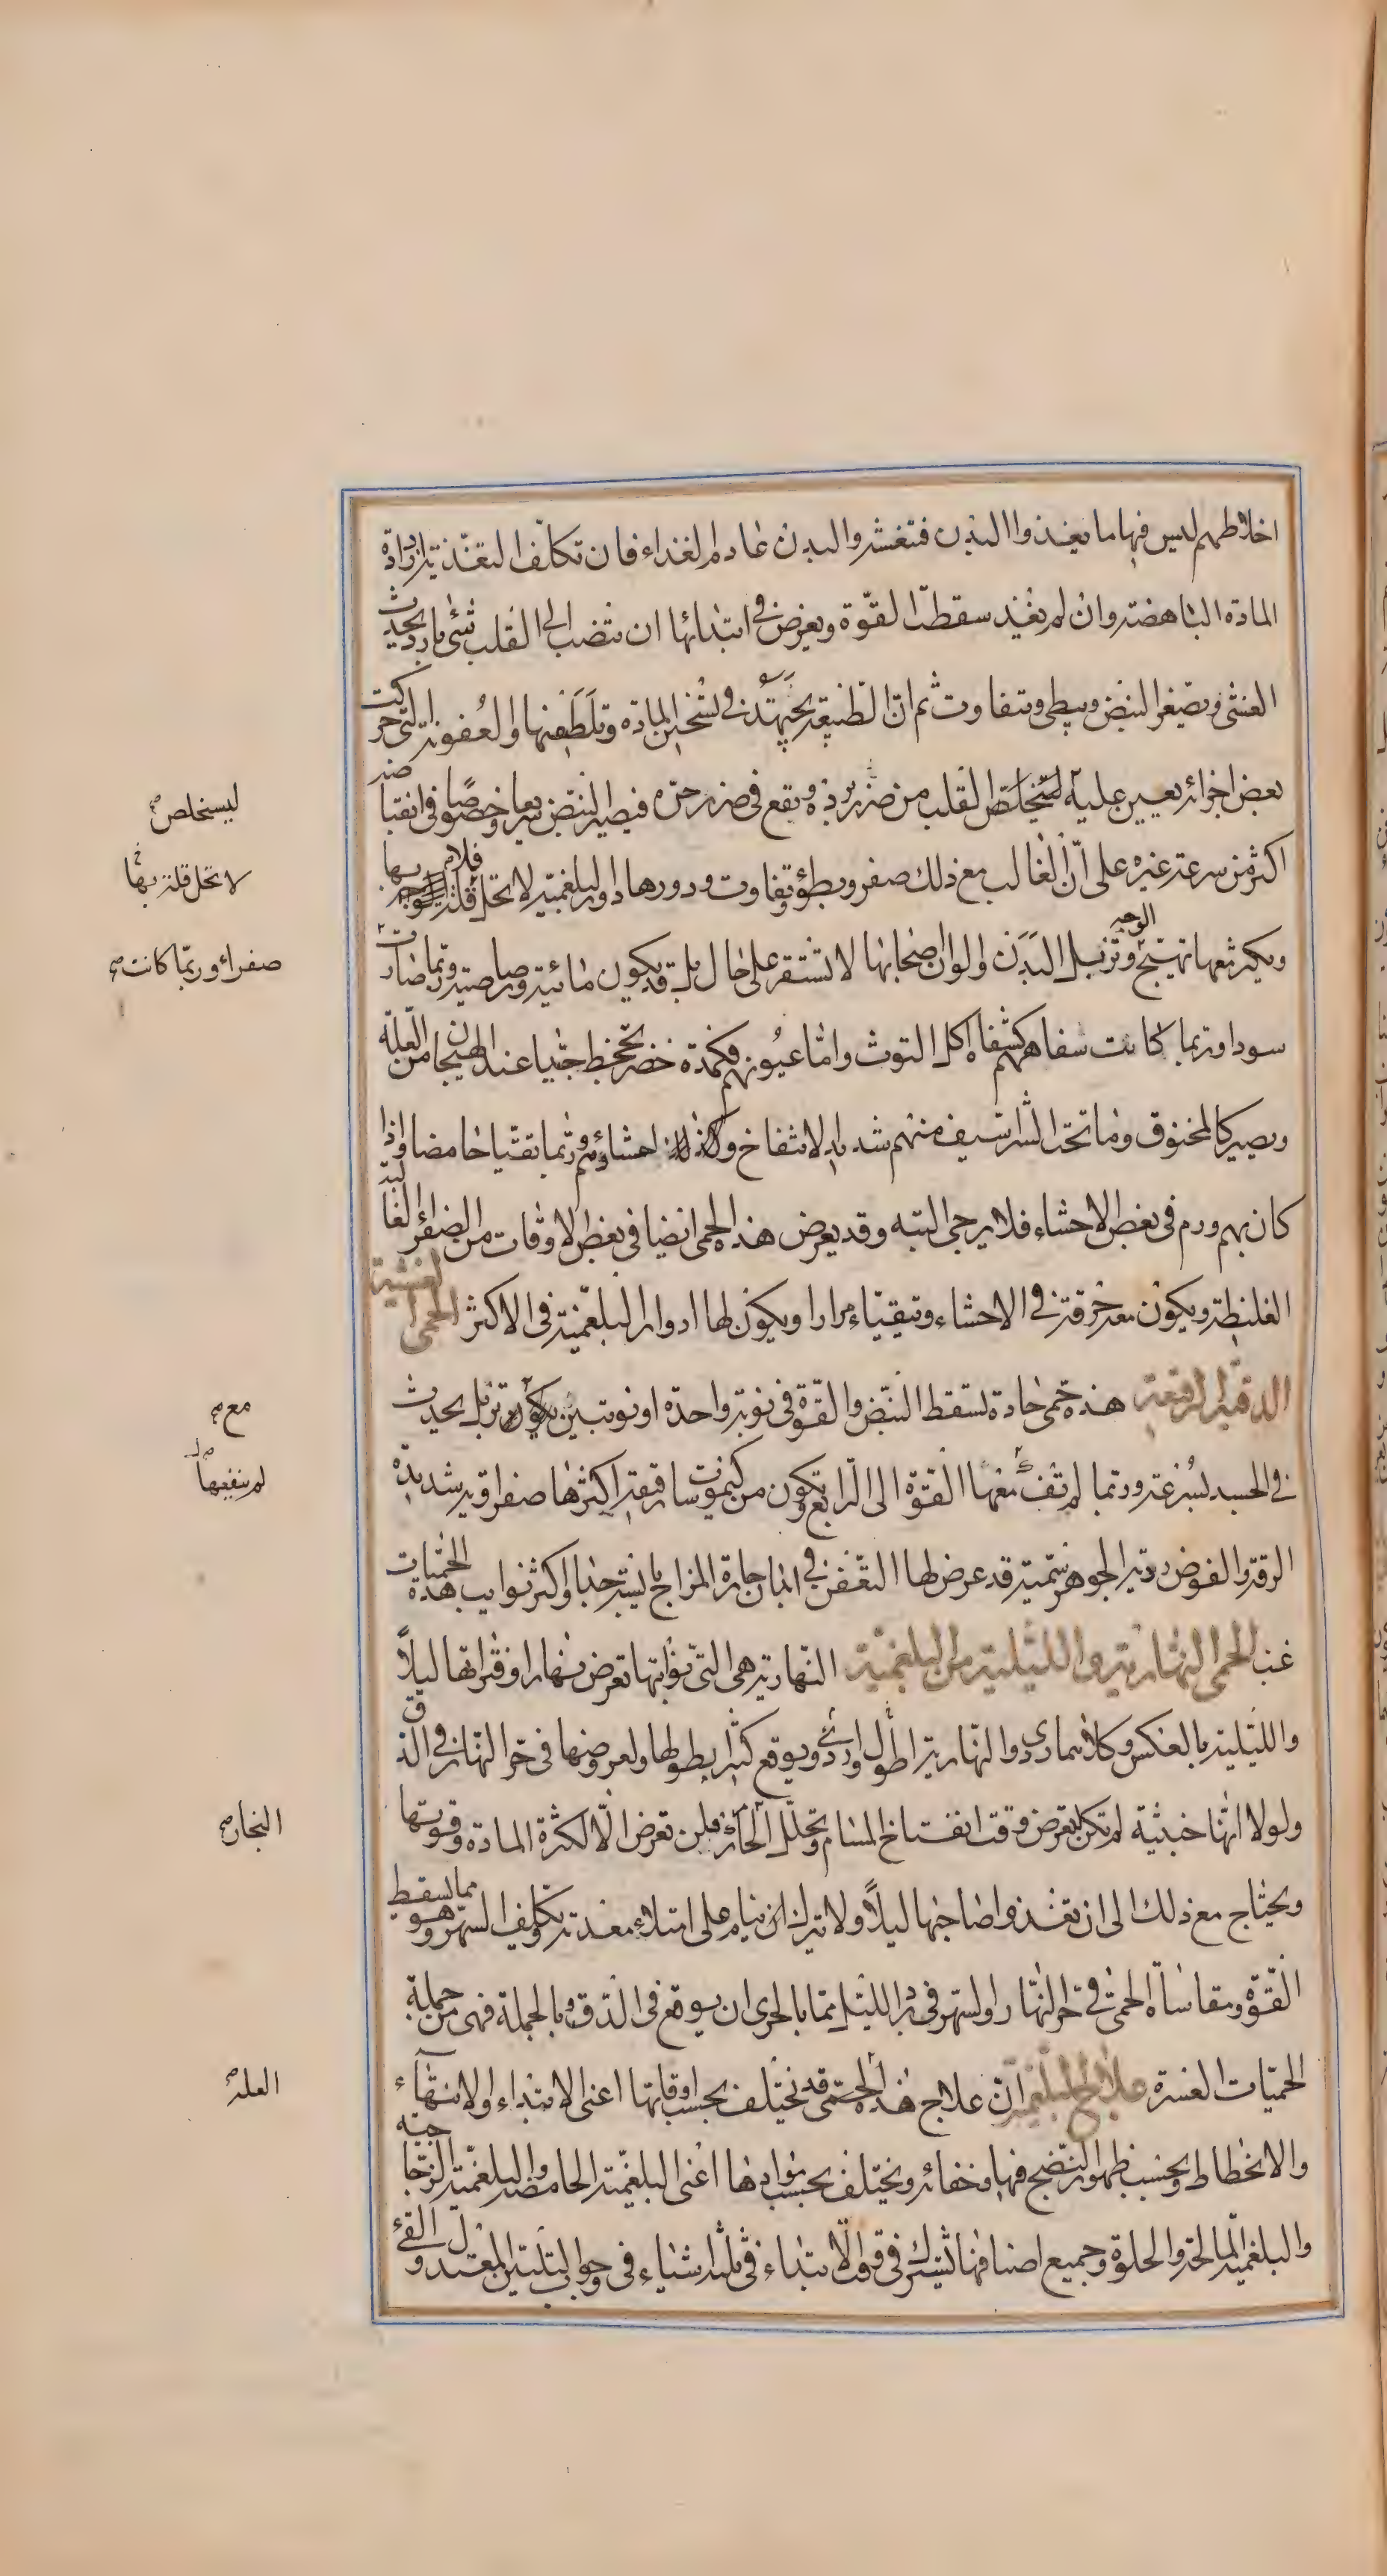 اخلاطهم ليس فيها ما يغذوا البدن فتغشر والبدن عادم الغذاء فان تكلف التغذية زادة
المادة الناهضة وان لم يغذ سقطت القوة ويعرض في ابتدائها ان ينصب الى القلب شئ بارد يحدث
الغشى ويصغر النبض ويبطى ويتفاوت ثم ان الطبيعة يجتهد في تسخين المادة وتلطفها والعفونة التي حركت
بعض اجزائه يعين عليه ليتخلص القلب من ضرر برده ويقع في ضرر حره فيصير النبض سريعا وخصوصا في انقباضه
اكثر من سرعة غيره على ان الغالب مع ذلك صغر وبطؤ وتفاوت ودورها دور البلغمية لا تحل قلابها
الوجه
ويكثر معها تهيج وترتبل البدن والوان اصحابها لا تستقر على حال بل قد يكون مائية ورصاصية وربما صارت
سودا وربما كانت شفاههم كشفاه اكل التوث واما عيونهم فكمدة خضر تجحظ جدا عند الهيجان من العلة
ويصير كالمخنوق وما تحت الشراسيف منهم شديد الانتفاخ وكذلك احشاؤهم وربما تقيا حامضا واذا
كان بهم ورم في بعض الاحشاء فلا يرجى البته وقد يعرض هذه الحمى ايضا في بعض الاوقات من الصفراء الغالبة
الغليظة ويكون معه حرقة في الاحشاء وتيقياء مرارا ويكون لها ادوار البلغمية في الاكثر الحمى الغشية
الدقية الرقيقة هذه حمى حادة تسقط النبض والقوة في نوبة واحدة او نوبتين يكون ترتبل يحدث
في الجسد بسرعة وربما لم تف معها القوة الى الرابع وتكون من كيموسات رقيقة اكثرها صفراوية شديدة
الرقة والغوض ردية الجوهر سمية قد عرض لها التعفن في ابدان حارة المزاج يابسة جدا واكثر نوايب هذه الحميات
غب الحمى النهارية والليلية من البلغمية النهارية هي التي نوابتها تعرض نهارا وفتراتها ليلاً
والليلية بالعكس وكلاهما ردى والنهارية اطول واردئ ويوقع كثيرا بطولها ولعروضها في حر النهار في الدق
ولولا انها خبيثة لم تكن تعرض وقت انفتاخ المسام وتحلل الحار فلن تعرض الا لكثرة المادة وقوتها
ويحتاج مع ذلك الى ان تغذوا صاحبها ليلاً ولا تترك ان ينام على امتلاء معدته وتكليف السهر وهو مما يسقط
القوة ومقاساة الحمى في حر النهار والسهر في برد الليل مما بالحرى ان يوقع في الدق وبالجملة فهى من جملة
الحميات العسرة علاج البلغمية ان علاج هذه الحمى قد تختلف بحسب اوقاتها اعنى الابتداء والانتهاء
والانخطاط وبحسب ظهور النضج فيها وخفائه ويختلف بحسب موادها اعنى البلغمية الحامضة والبلغمية الزجاجية
والبلغمية المالحة والحلوة وجميع اصنافها تشترك في قوف الابتداء في ثلثة اشياء في وجوب التليين المعتدل والقئ
ليستخلص
لا تحل قلة بها
صفراء وربما كانت
مع
لم ينفعها
البخار
العلة